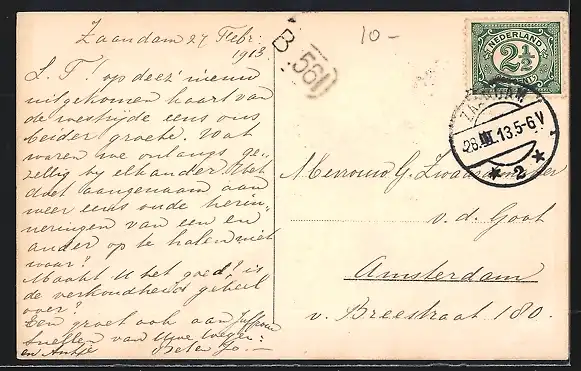 Zaandam 27 Febr.
1913.
L. T! op deez' nieuw
uitgekomen kaart van
de westzijde eens ons
beider groete. Wat
waren we onlangs ge-
zellig bij elkander Wat
doet aangenaam aan
weer eens oude herin-
neringen van een en
ander op te halen niet
waar?
Maakt U het goed? is
de verkoudheid geheel
over?
Een groet ook aan Juffrouw
Snellen van Uwe toegen:
en Antje
B. 561
10-
NEDERLAND
2½
CENT
ZAANDAM
28.II.13.5-6V
2
Mevrouw G. Zwaardemaker
v. d. Goot
Amsterdam
v. Breestraat 180.